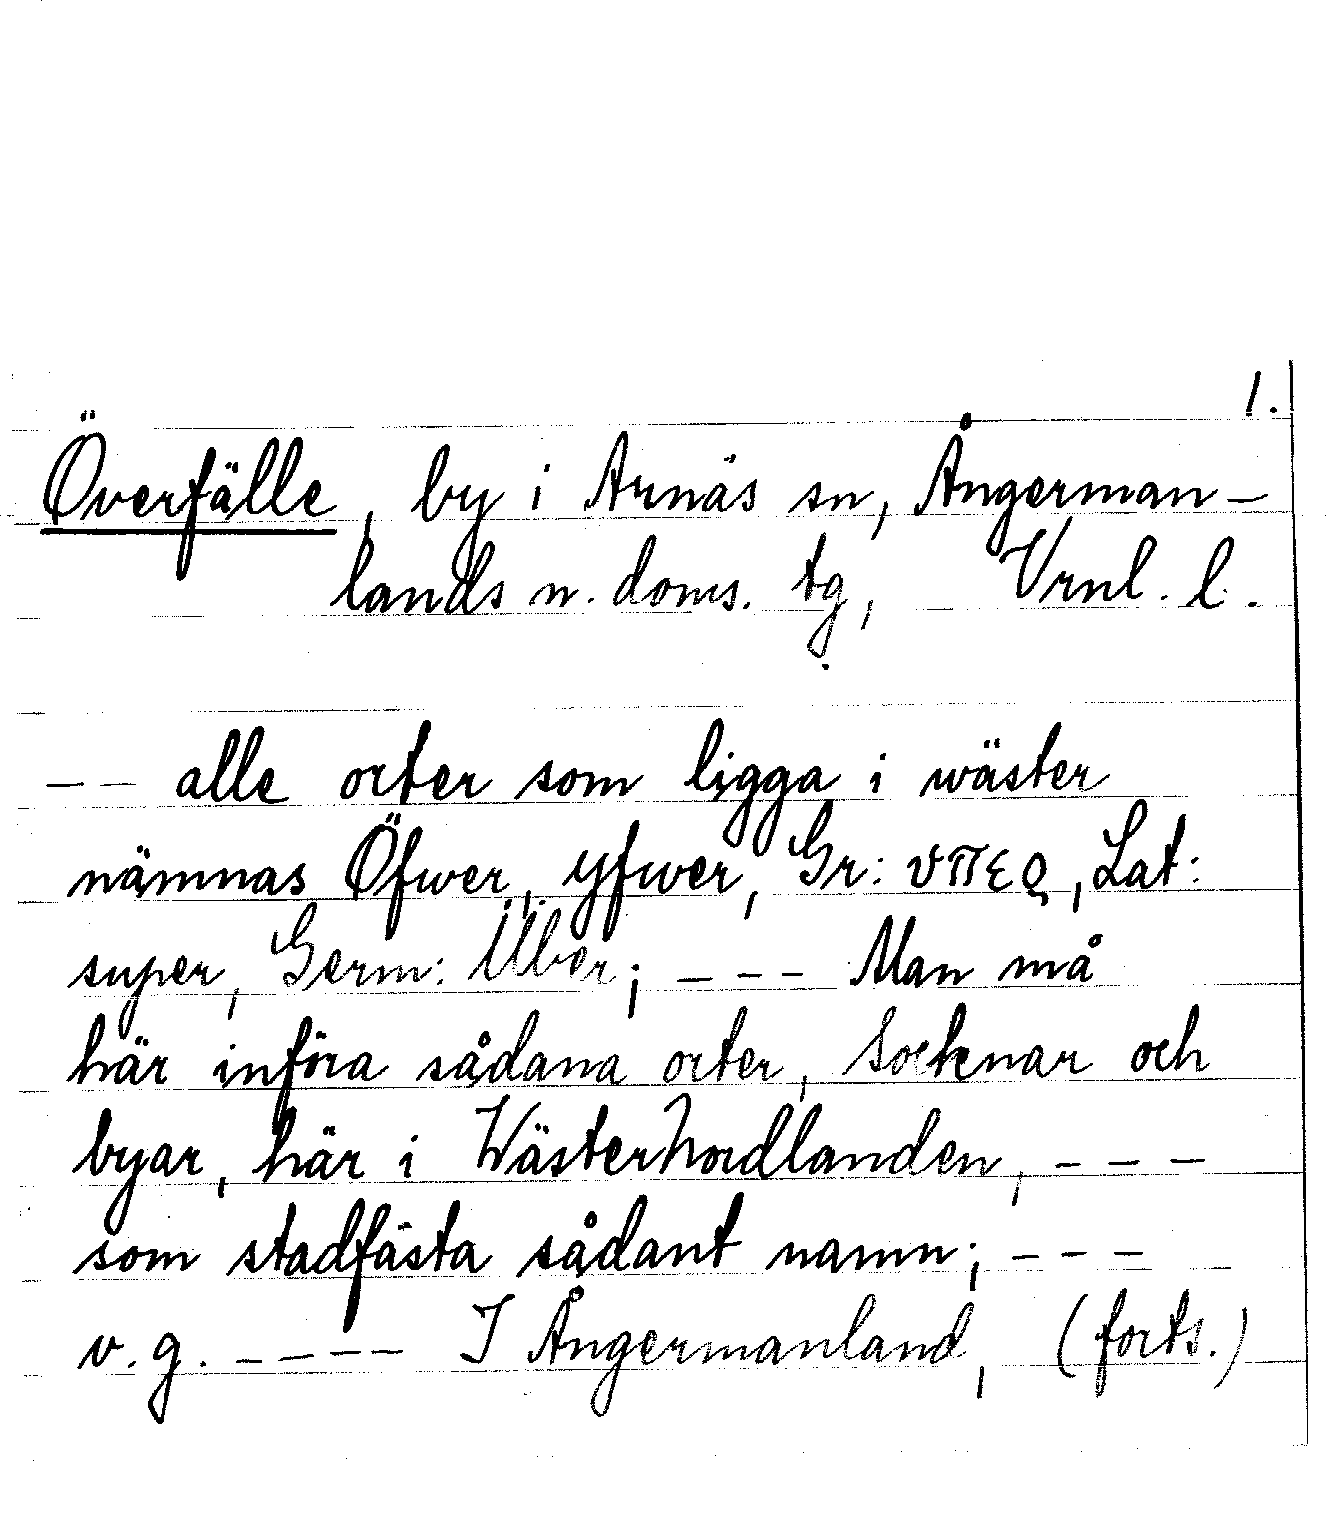 1.
Överfälle, by i Arnäs sn, Ångerman-
lands n. doms. tg, Vrnl. l.
-- alle orter som ligga i wäster
nämnas Öfwer, yfwer, Gr: υπερ, Lat:
super, Germ: Über; --- Man må
här införa sådana orter, Socknar och
byar, här i Wästernordlanden, ---
som stadfästa sådant namn; ---
v.g. ---- I Ångermanland, (forts.)